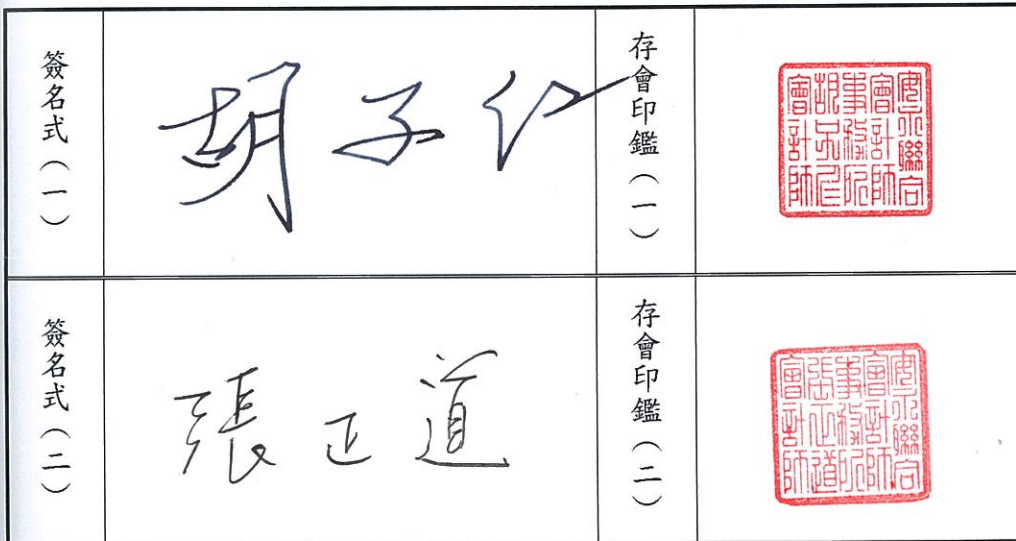 簽名式（一）
胡子仁
存會印鑑（一）
安永聯合
會計師
事務所
胡子仁
會計師
簽名式（二）
張正道
存會印鑑（二）
安永聯合
會計師
事務所
張正道
會計師